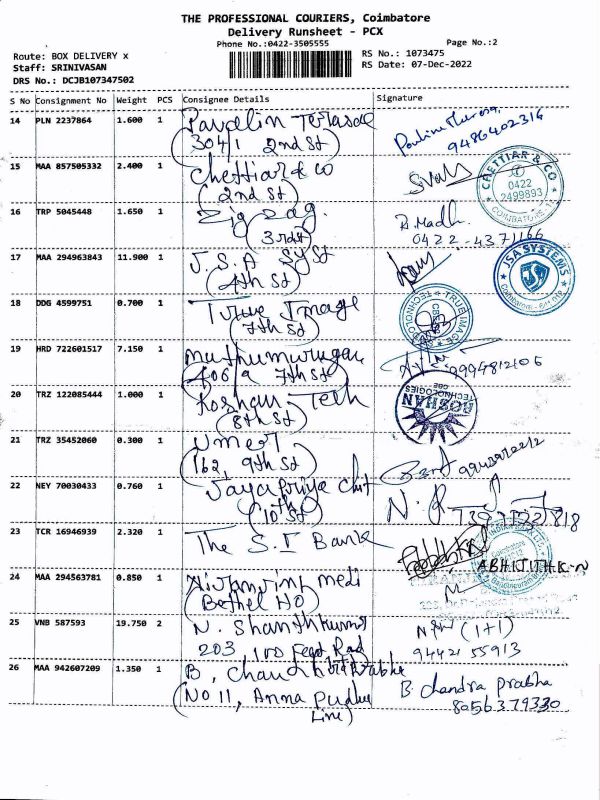 THE PROFESSIONAL COURIERS, Coimbatore
Delivery Runsheet - PCX
Phone No.:0422-3505555
Page No.:2
Route: BOX DELIVERY x
RS No.: 1073475
Staff: SRINIVASAN
RS Date: 07-Dec-2022
DRS No.: DCJB107347502
S No Consignment No Weight PCS Consignee Details Signature
14 PLN 2237864 1.600 1 Pavalin Terasae
(304/1 2nd St)
9486402316
15 MAA 857505332 2.400 1 Chettiar & co
(2nd St)
CHETTIAR & CO
0422
2499893
COIMBATORE
16 TRP 5045448 1.650 1 Zig Zag.
(3rd St)
R. Madh.
0422-4371166
17 MAA 294963843 11.900 1 J.S.A Syst
(4th St)
JSA SYSTEMS
18 DDG 4599751 0.700 1 Turue Image
(7th St)
TRUE IMAGE
19 HRD 722601517 7.150 1 Muthumurugan
406/a 7th St
9994812105
20 TRZ 122085444 1.000 1 Roshan Tech
(8th St)
ROSHAN
TECHNOLOGIES
CBE
21 TRZ 35452060 0.300 1
162, 9th St
22 NEY 70030433 0.760 1 Jayapriya Chit
(10th St)
23 TCR 16946939 2.320 1 The S.I Bank
ABHIJITHK-N
24 MAA 294563781 0.850 1 medi
(Bethel HO)
25 VNB 587593 19.750 2 N. Shanthkumar
203 100 Feet Rad
(1+1)
94421 55913
26 MAA 942607209 1.350 1 B, Chandra Prabha
(No 11, Anna Pudhu
Line)
B. Chandra Prabha
8056379330